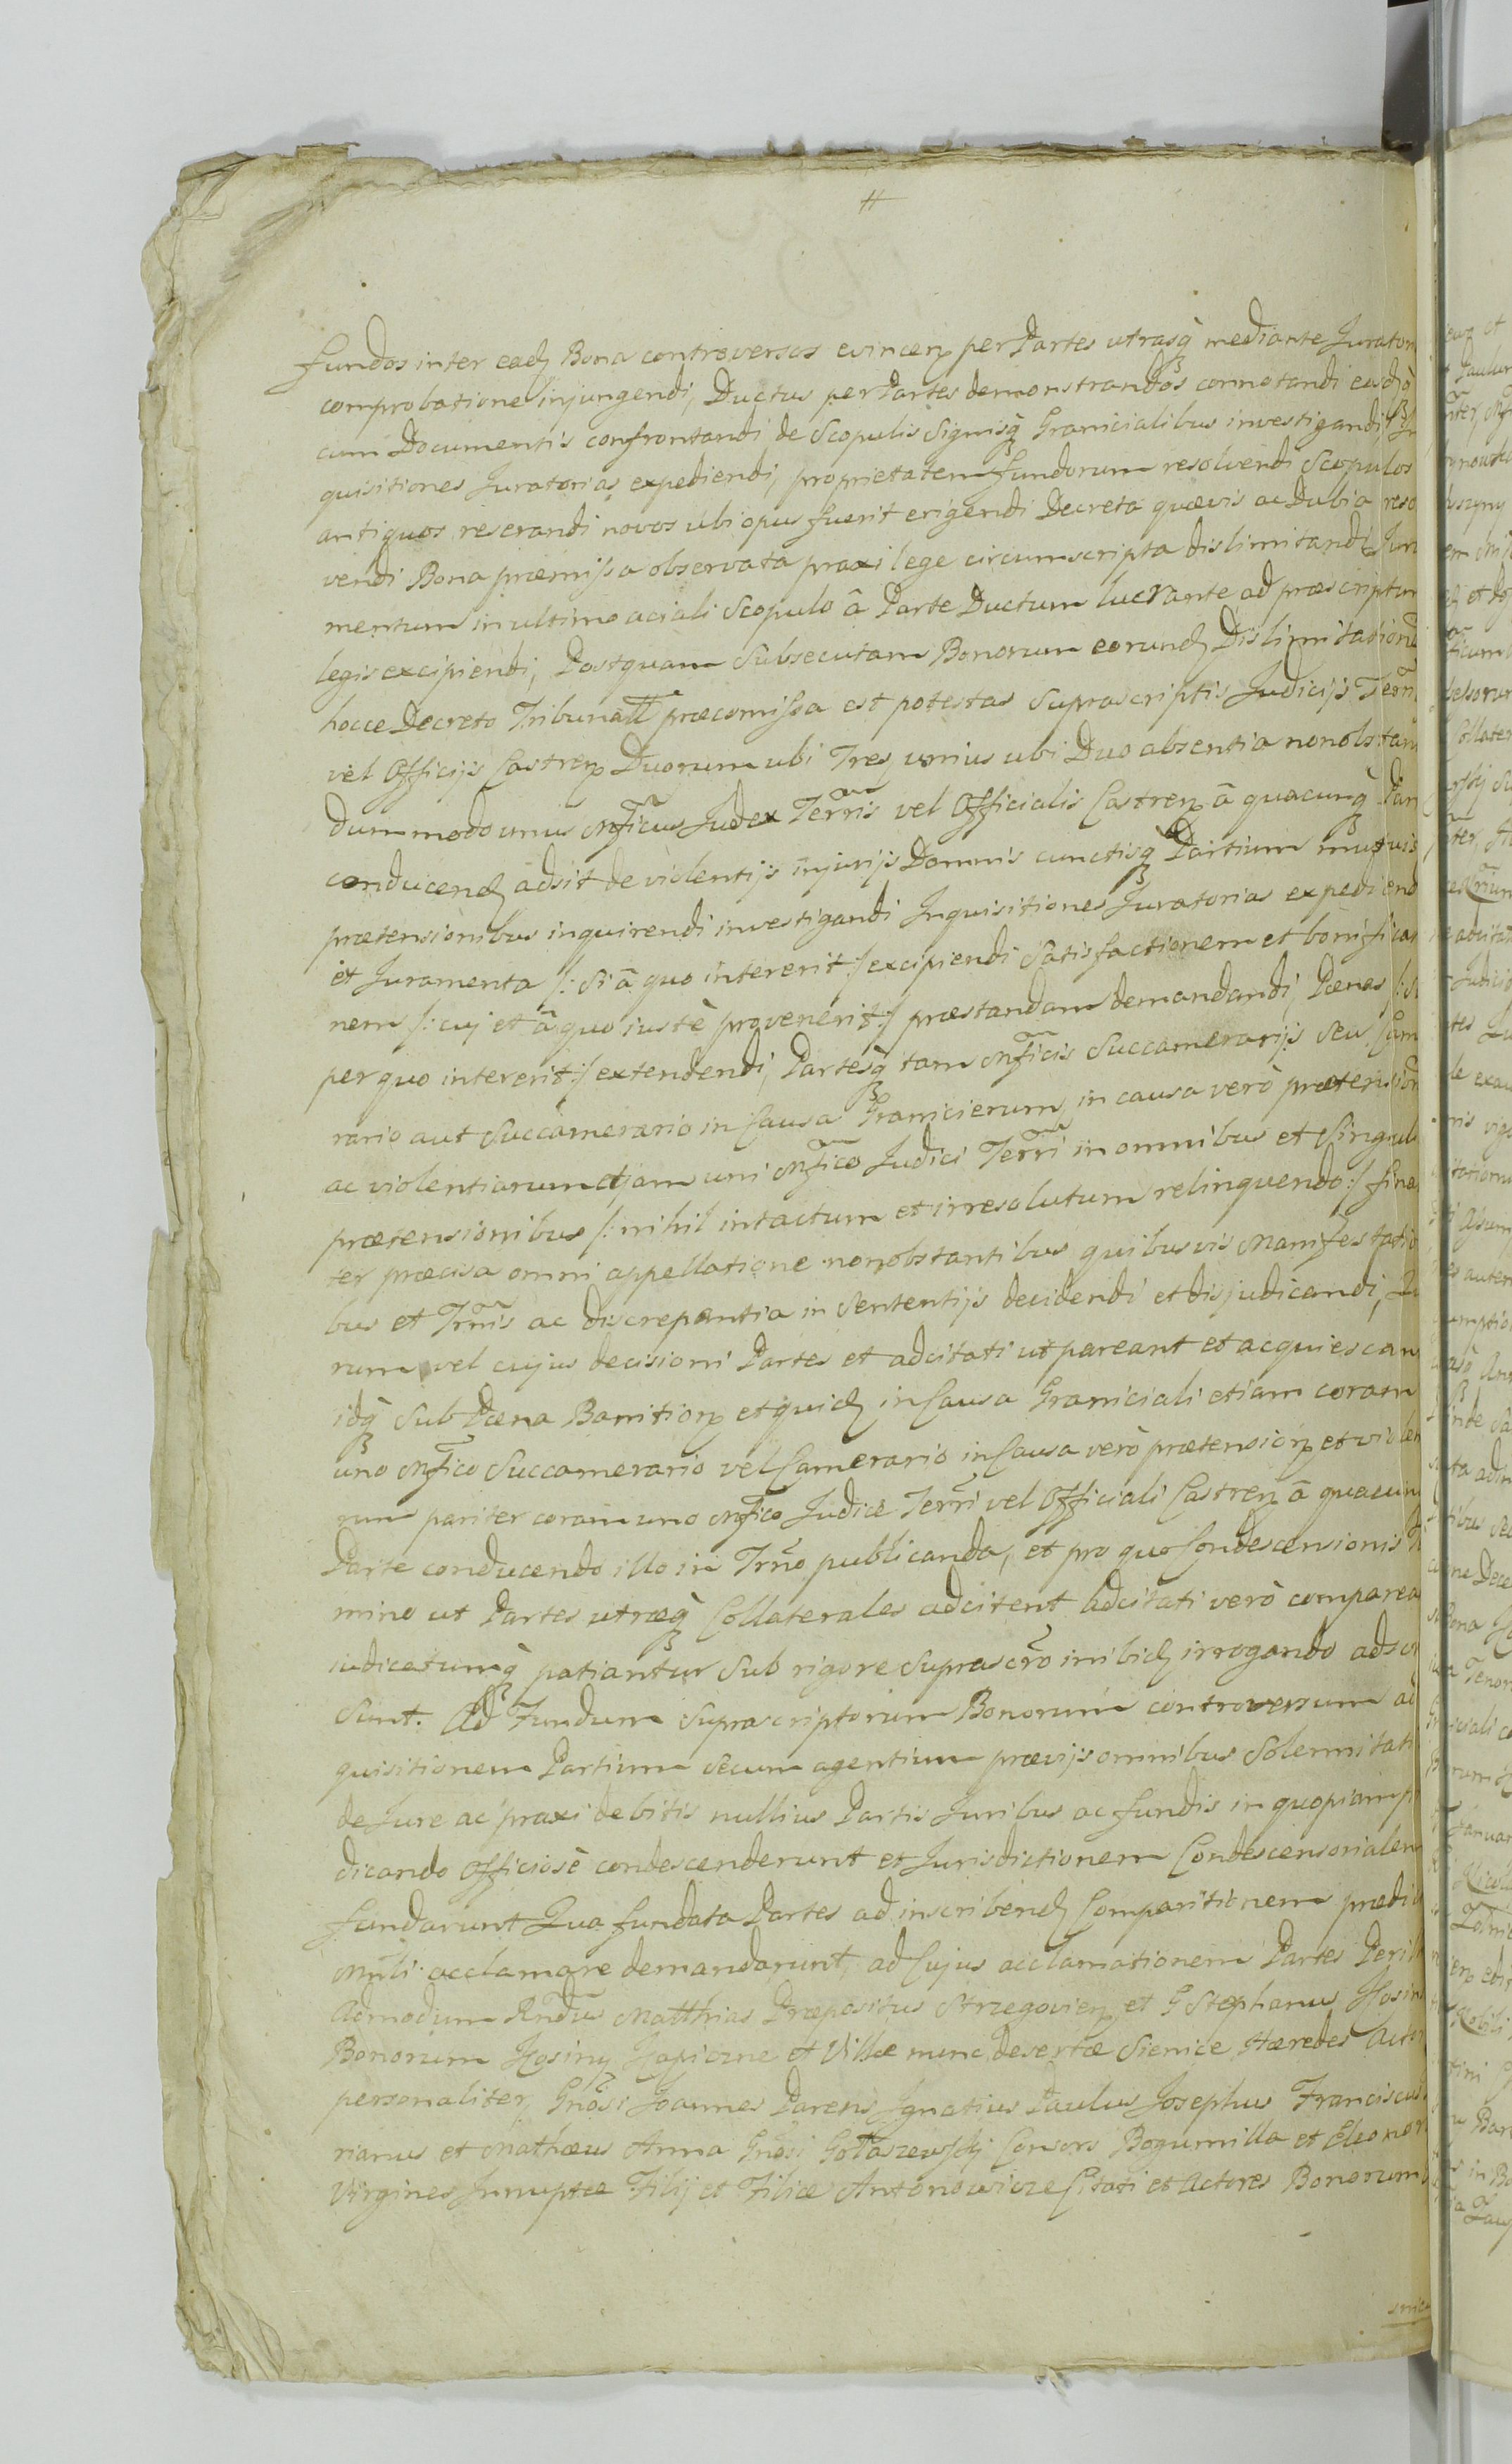 #
fundos inter eadz Bona controversos evincen per Partes utrasq̀ mediante Jurator
comprobatione injungendi, Ductus per Partes demonstrandos connotandi eosdz
cum Documentis confrontandi de Scopulis Signisq̀ Granicialibus investigandi In
quisitiones Juratorias expediendi, proprietatem fundorum resolvendi Scopulos
antiquos reserandi novos ubi opus fuerit erigendi Decreta quævis ac Dubia reso
vendi Bona præmissa observata praxi lege circumscripta dislimitandi, Jura
mentum in ultimo aciali Scopulo â Parte Ductum lucrante ad præscriptum
legis excipiendi, Postquam Subsecutam Bonorum eorundz Dislimitation
hocce Decreto Tribunall præcomissa est potestas Suprascriptis Judicijs Terri
vel Officijs Castren Duorum ubi Tres, unius ubi Duo absentia nonobstan
dummodo unus Mficus Judex Terris vel Officialis Castren â quacunq̀ Par
conducendz adsit de violentijs injurijs Damnis cunctisq̀ Partium mutuis
prætensionibus inquirendi investigandi Inquisitiones Juratorias expediend
et Juramenta /: Si â quo intererit :/ excipiendi Satisfactionem et bonificati
nem /: cuj et â quo iustè provenerit :/ præstandam demandandi, Pænas /: S
per quo intererit :/ extendendi, Partesq̀ tam Mficis Succamerarijs Seu Cam
rario aut Succamerario in Causa Granicierum, in causa verò prætension
ac violentiarum etjam uni Mfico Judici Terri in omnibus et Singuli
prætensionibus /: nihil intactum et irresolutum relinquendo :/ fina
ter præcisa omni appellatione nonobstantibus quibusvis Manifestatio
bus et Trnis ac discrepantia in Sententijs decidendi et disjudicandi, Quo
rum vel cujus decisioni Partes et adcitati ut pareant et acquiescan
idq̀ Sub Pæna Bannition et quidz in Causa Graniciali etiam coram
uno Mfico Succamerario vel Camerario in Causa verò prætension et violen
rum pariter coram uno Mfico Judice Terri vel Officiali Castren â quacun
Parte conducendo illo in Trno publicanda, et pro quo Condescensionis Te
mino ut Partes utræq̀ Collaterales adcitent Adcitati verò comparea
iudicatumq̀ patiantur Sub rigore Suprascro inibidz irrogando adscr
Sunt. Ad Fundum Suprascriptorum Bonorum controversum ad
quisitionem Partium Secum agentium prævijs omnibus Solennitati
de Jure ac praxi debitis nullius Partis Juribus ac fundis in quopiam p
dicando Officiosè condescenderunt et Jurisdictionem Condescensorialem
fundarunt Qua fundata Partes ad inscribendz Comparitionem prædic
Mnli acclamare demandarunt, ad Cujus acclamationem Partes Perill
Admodum Rndus Matthias Præpositus Strzegovien et G Stephanus Kosin
Bonorum Kosiny Kapiczne et Villæ nunc desertæ Sienice Hæredes Acto
personaliter, Gnosi Joannes Parens Ignatius Paulus Josephus Franciscus
rianus et Mathæus Anna Gnosi Gołaszewskj Consors Bogumilla et Eleonor
Virgines Innuptæ Filij et Filiæ Antonowicze Citati et Actores Bonorum